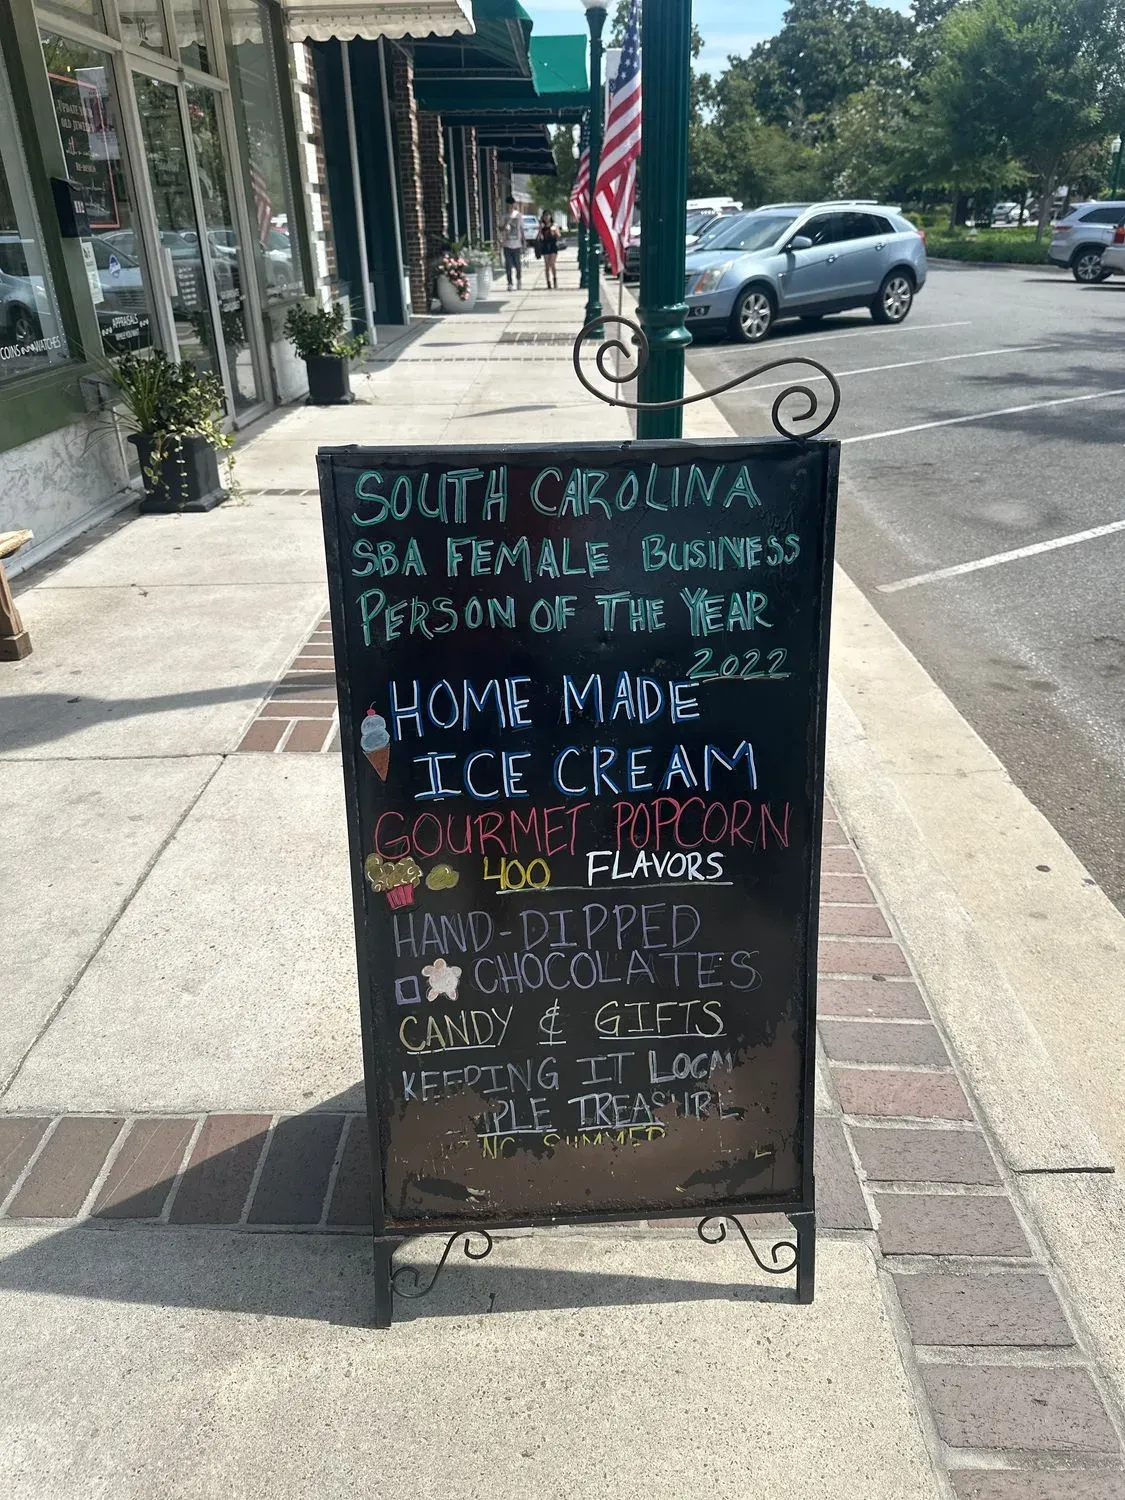 SOUTH CAROLINA
SBA FEMALE BUSINESS
PERSON OF THE YEAR
2022
HOME MADE
ICE CREAM
GOURMET POPCORN
400 FLAVORS
HAND-DIPPED
CHOCOLATES
CANDY & GIFTS
KEEPING IT
OLD
APPRAISALS
COINS WATCHES